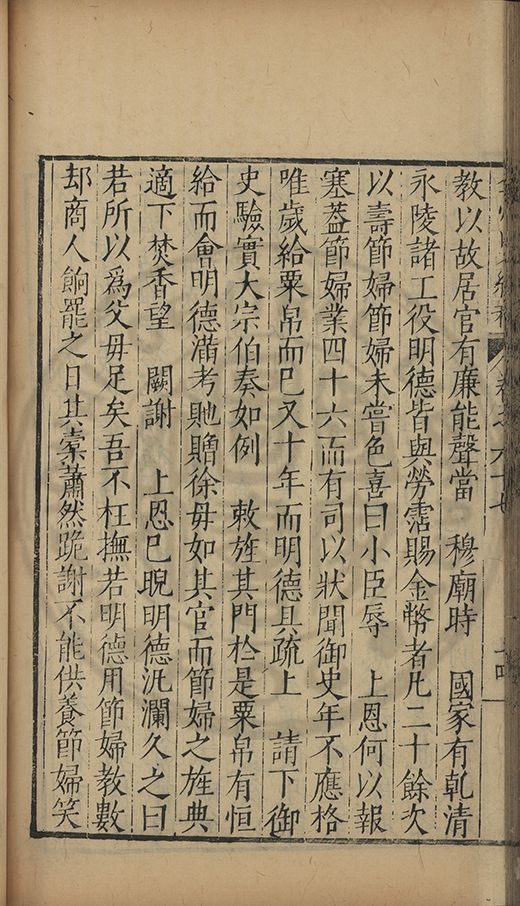 教以故居官有廉能聲當　穆廟時　國家有乹清
永陵諸工役明德皆與勞霑賜金幣者凡二十餘次
以壽節婦節婦未嘗色喜曰小臣辱　上恩何以報
塞葢節婦業四十六而有司以狀聞御史年不應格
唯歲給粟帛而已又十年而明德具疏上　請下御
史驗實大宗伯奏如例　敕旌其門於是粟帛有恒
給而會明德滿考貤贈徐毋如其官而節婦之旌典
適下焚香望　闕謝　上恩已睨明德汍瀾久之曰
若所以爲父毋足矣吾不枉撫若明德用節婦教數
却商人餉罷之日其橐蕭然跪謝不能供養節婦笑